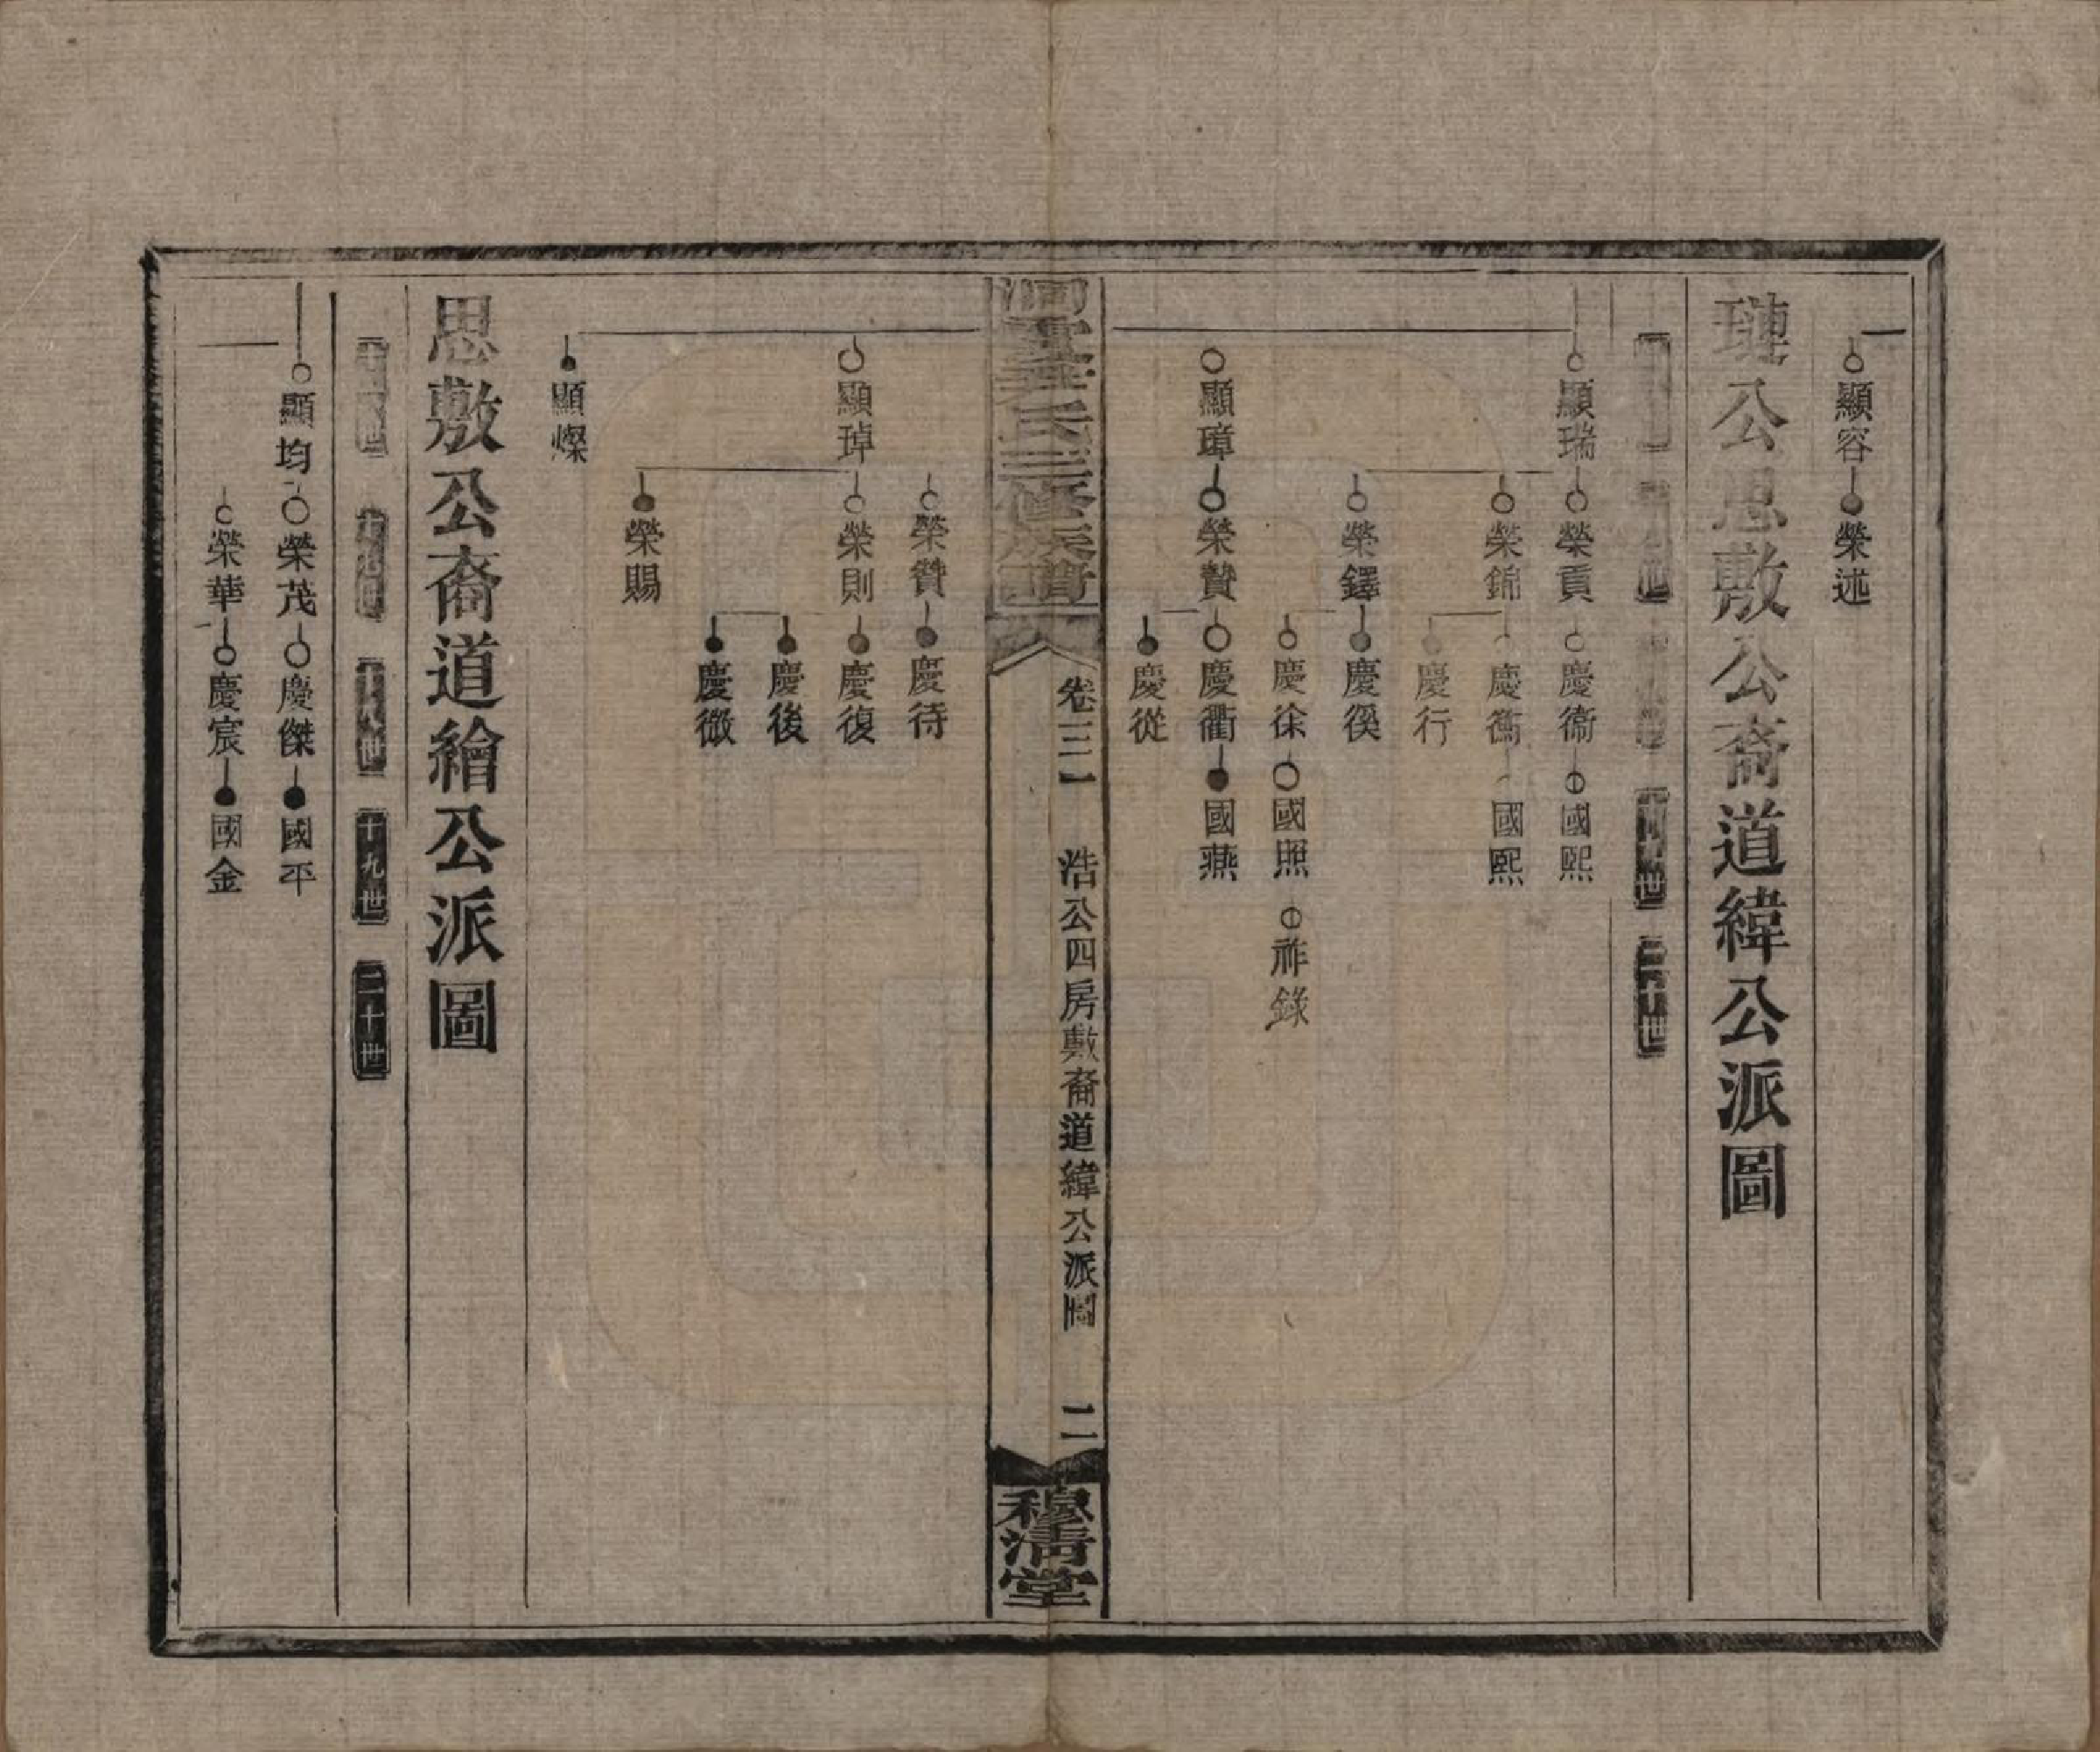 顯容 榮述
璉公思敷公裔道緯公派圖
世 二十世
顯瑞 榮貢 慶衞 國熙
榮錦 慶 國熙
慶行
榮鐸 慶徯
慶徐 國照 祚錄
顯璋 榮贊 慶衢 國燕
慶從
洞 氏三修族譜 卷三一 浩公四房敷裔道緯公派圖 二 穆清堂
榮贊 慶待
顯琸 榮則 慶復
慶後
慶徵
榮賜
顯燦
思敷公裔道繪公派圖
十九世 二十世
顯均 榮茂 慶傑 國平
榮華 慶宸 國金